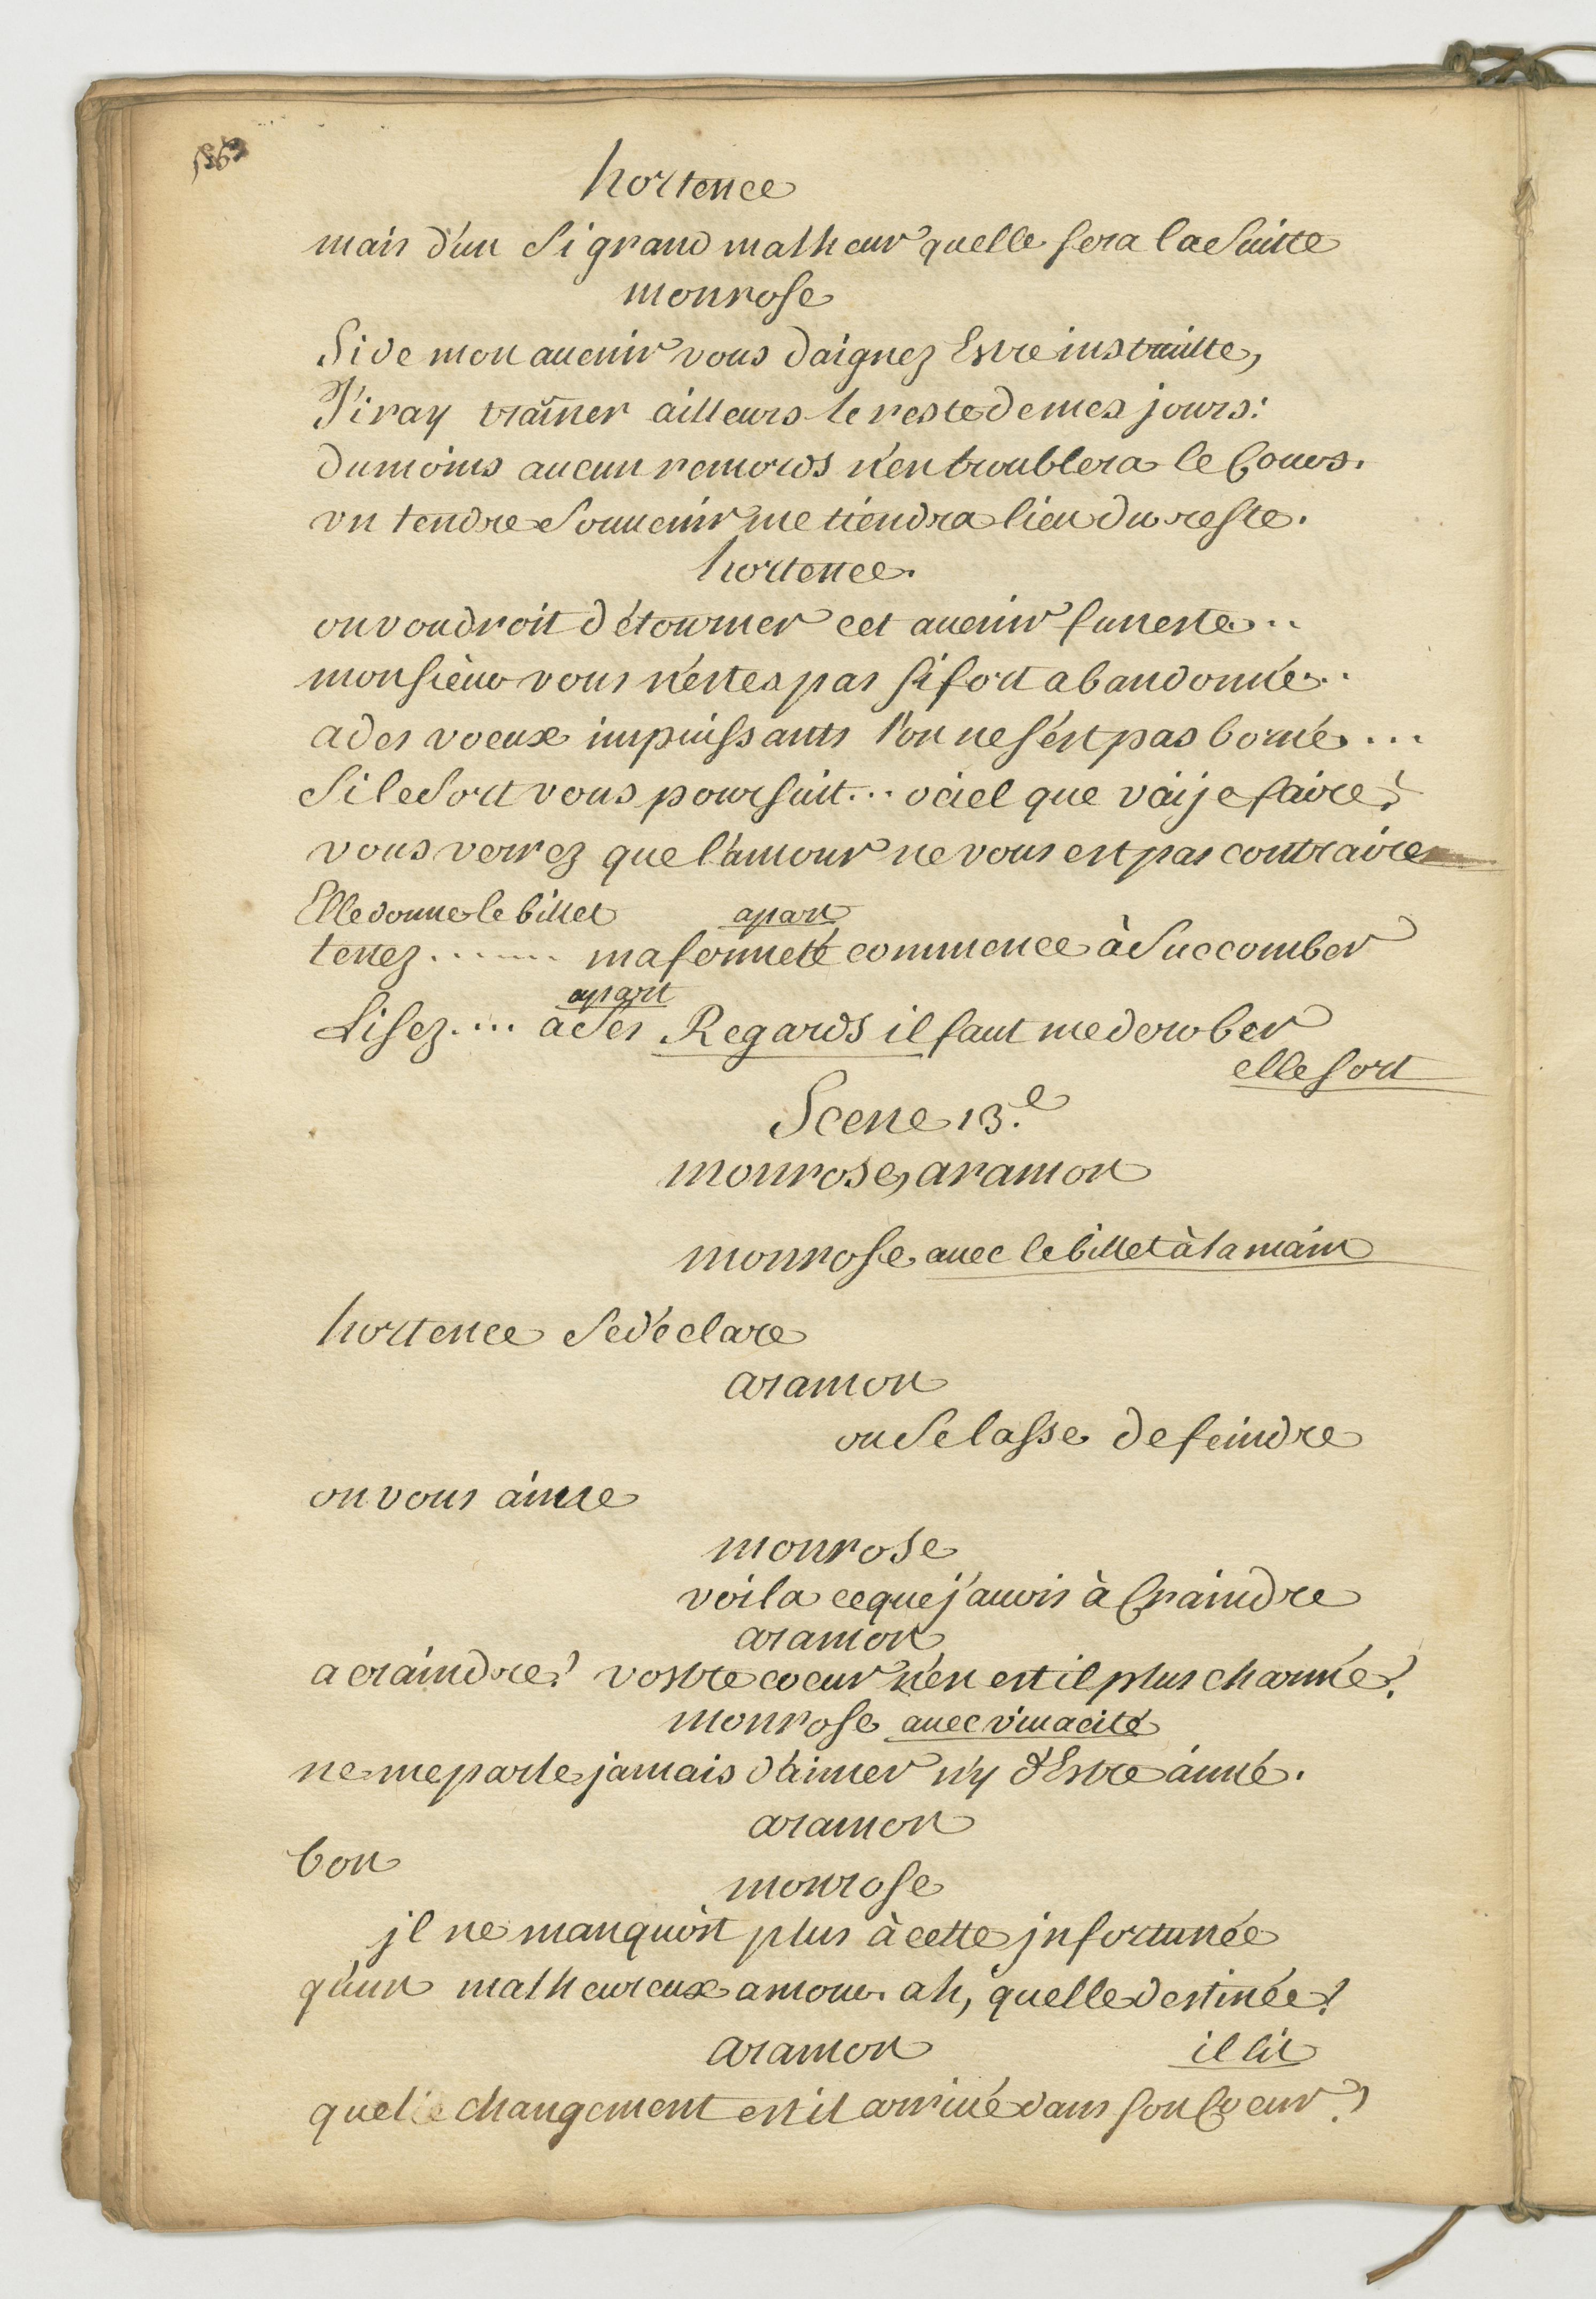 hortence
mais d'un si grand malheur quelle sera la suitte
monrose
Si de mon auenir vous daignez Estre instruitte,
J'iray traîner ailleurs le reste de mes jours:
du moins aucun remords n'en troublera le Cours.
vn tendre souuenir me tiendra lieu du reste.
hortence.
on voudroit détourner cet auenir funeste...
monsieur vous n'estes pas si fort abandonné...
a des voeux impuissants l'on ne s'est pas borné...
si le sort vous poursuit... o ciel que vai je faire?
vous verrez que l'amour ne vous est pas contraire
Elle donne le billet apart
tenez....... ma fermeté commence à succomber
apart
Lisez.... a ses Regards il faut me derober
elle sort
Scene 13.e
monrose, aramon
monrose auec le billet à la main
hortence se déclare
aramon
on se lasse de feindre
on vous aime
monrose
voila ce que j'auois à Craindre
aramon
a craindre? vostre coeur n'en est il plus charmé?
monrose auec viuacité
ne me parle jamais d'aimer n'y d'Estre aimé.
aramon
bon
monrose
jl ne manquoit plus à cette jnfortunée
qu'un malheureux amour. ah, quelle destinée!
aramon il lit
quel changement est il arriué dans son Coeur?